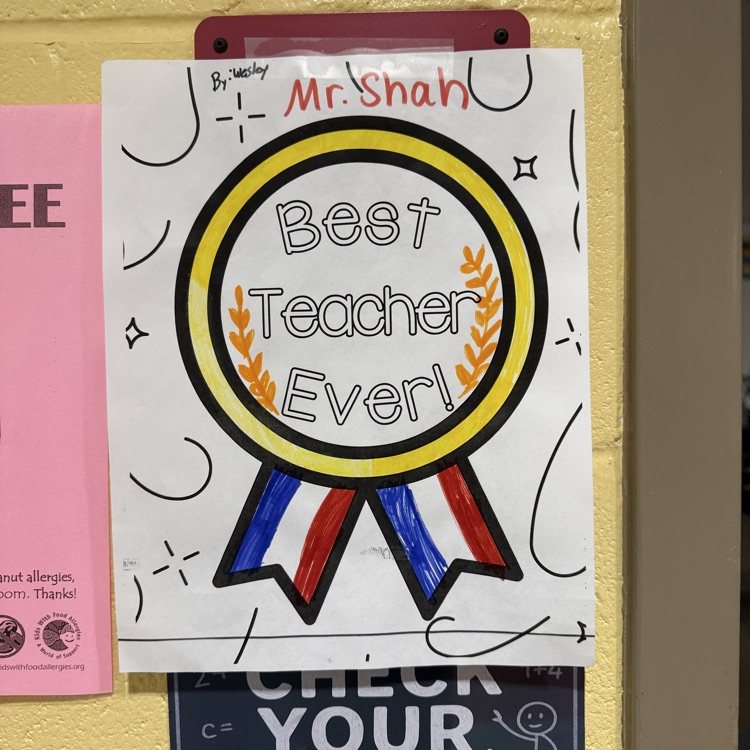 By: Wesley
Mr. Shah
Best
Teacher
Ever!
EE
anut allergies,
oom. Thanks!
Kids With Food Allergies
A World of Support
idswithfoodallergies.org
CHECK
YOUR
1+4
c=